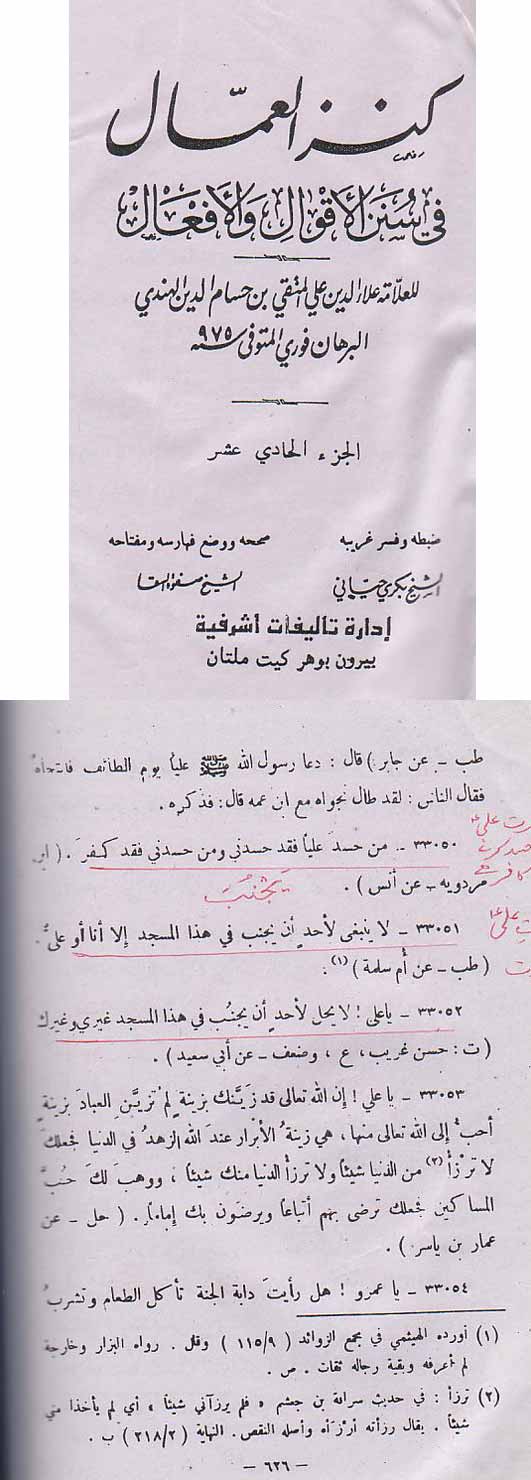 كنز العمال
في سنن الأقوال والأفعال
للعلامة علاء الدين علي المتقي بن حسام الدين الهندي
البرهان فوري المتوفى سنة ٩٧٥
الجزء الحادي عشر
ضبطه وفسر غريبه
الشيخ بكري حياني
صححه ووضع فهارسه ومفتاحه
الشيخ صفوة السقا
إدارة تاليفات أشرفية
بيرون بوهر كيت ملتان
طب ـ عن جابر ) قال : دعا رسول الله ﷺ علياً يوم الطائف فانتجاه
فقال الناس : لقد طال نجواه مع ابن عمه قال : فذكره .
٣٣٠٥٠ ـ من حسدَ علياً فقد حسدني ومن حسدني فقد كفرَ . ( ابن
مردويه ـ عن أنس ) .
يَجْنُبَ
٣٣٠٥١ ـ لا ينبغى لأحدٍ أن يجنب في هذا المسجد إلا أنا أو عليٌّ .
( طب ـ عن أم سلمة ) (١) .
٣٣٠٥٢ ـ يا على ! لا يحل لأحدٍ أن يجنُب في هذا المسجد غيري وغيرك
( ت : حسن غريب ، ع ، وضعف ـ عن أبي سعيد ) .
٣٣٠٥٣ ـ يا علي ! إن الله تعالى قد زَيَّنك بزينةٍ لم تُزيَّن العبادَ بزينةٍ
أحبَّ إلى الله تعالى منها ، هي زينةُ الأبرار عندَ الله الزهدُ في الدنيا فجعلكَ
لا ترْزأُ (٢) من الدنيا شيئاً ولا ترزأُ الدنيا منك شيئاً ، ووهبَ لكَ حُبَّ
المساكين فجعلك ترضى بهم أتباعاً ويرضون بك إماماً . ( حل ـ عن
عمار بن ياسر ) .
٣٣٠٥٤ ـ يا عمرو ! هل رأيتَ دابة الجنة تأكل الطعام وتشربُ
(١) أورده الهيثمي في مجمع الزوائد ( ١١٥/٩ ) وقال . رواه البزار وخارجة
لم أعرفه وبقية رجاله ثقات . ص .
(٢) ترزأ : في حديث سراقة بن جعشم « فلم يرزآني شيئاً » أي لم يأخذا مني
شيئاً . يقال رزأته أرزأه وأصله النقص . النهاية ( ٢١٨/٢ ) ب .
ـ ٦٢٦ ـ